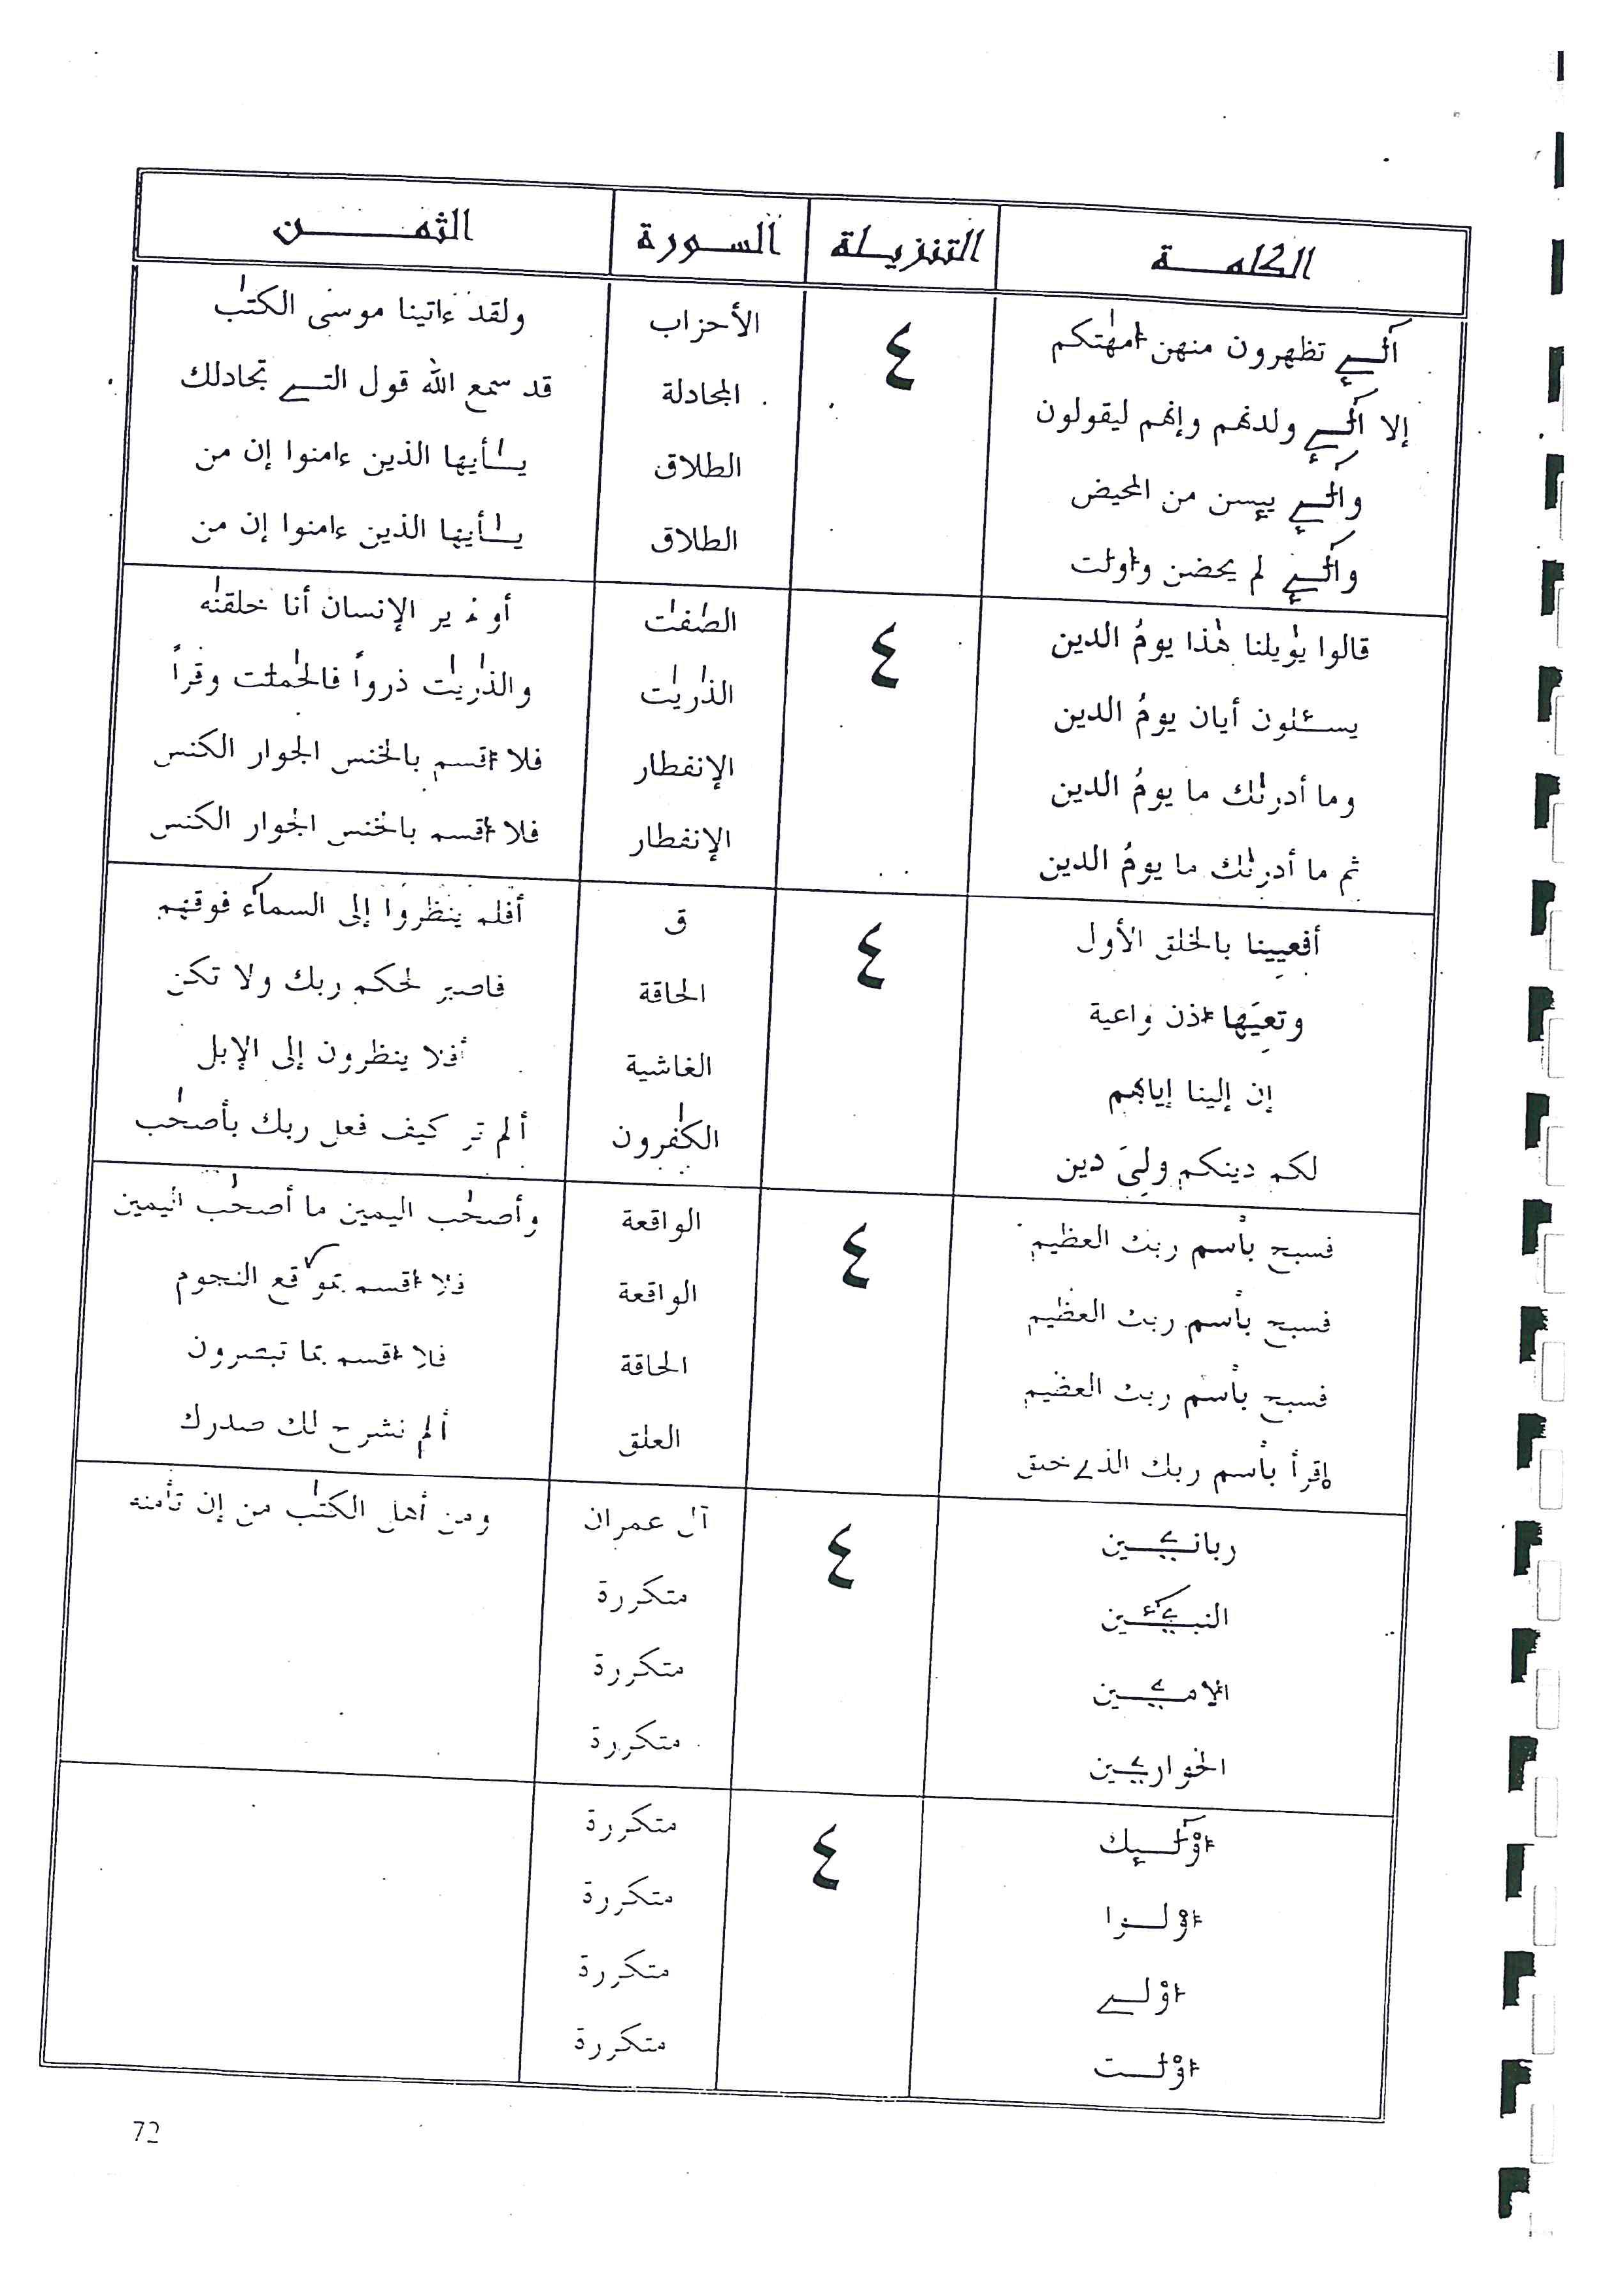 الكلمة التنزيلة السورة الثمن
الٰـے تظهرون منهن أمهٰتكم ٤ الأحزاب ولقد ءاتينا موسى الكتٰب
إلا الٰـے ولدنهم وإنهم ليقولون المجادلة قد سمع الله قول التـے تجادلك
والٰـے ييسن من المحيض الطلاق يـٰأيها الذين ءامنوا إن من
والٰـے لم يحضن وأولٰت الطلاق يـٰأيها الذين ءامنوا إن من
قالوا يٰويلنا هٰذا يومُ الدين ٤ الصٰفٰت أو لم ير الإنسان أنا خلقنٰه
يسـٔلون أيان يومُ الدين الذٰريٰت والذٰريٰت ذرواً فالحٰملٰت وقراً
وما أدرىٰك ما يومُ الدين الإنفطار فلا أقسم بالخنس الجوار الكنس
ثم ما أدرىٰك ما يومُ الدين الإنفطار فلا أقسم بالخنس الجوار الكنس
أفعيِينا بالخلق الأول ٤ ق أفلم ينظروا إلى السماء فوقهم
وتعِيَها أذن واعية الحاقة فاصبر لحكم ربك ولا تكن
إن إلينا إيابهم الغاشية أفلا ينظرون إلى الإبل
لكم دينكم ولِيَ دين الكٰفرون ألم تر كيف فعل ربك بأصحٰب
فسبح بٱسم ربك العظيم ٤ الواقعة وأصحٰب اليمين ما أصحٰب اليمين
فسبح بٱسم ربك العظيم الواقعة فلا أقسم بموٰقع النجوم
فسبح بٱسم ربك العظيم الحاقة فلا أقسم بما تبصرون
إقرأ بٱسم ربك الذے خلق العلق ألم نشرح لك صدرك
ربانيـۧين ٤ آل عمران ومن أهل الكتٰب من إن تأمنه
النبيـۧـٕين متكررة
الأميـۧين متكررة
الحواريـۧين متكررة
أوْلٰـئك ٤ متكررة
أوْلـوا متكررة
أوْلـے متكررة
أوْلٰـت متكررة
72